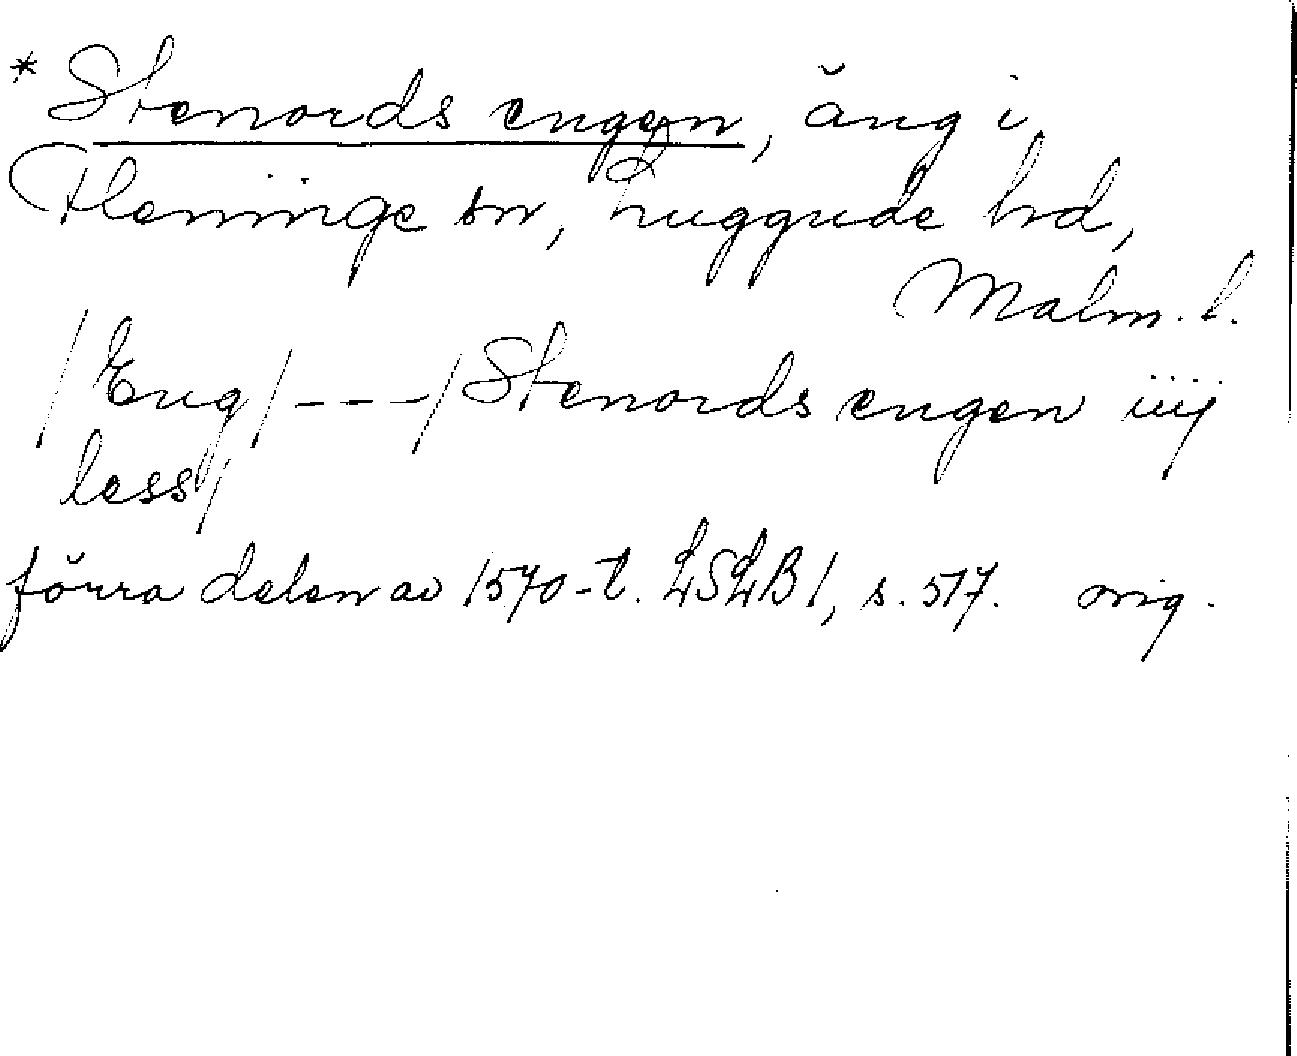 * Stenords engen, äng i
Fleninge sn, Luggude hd,
Malm. l.
/Eng/---/Stenords engen iiij
less/
förra delen av 1570-t. LSLB 1, s. 517. orig.